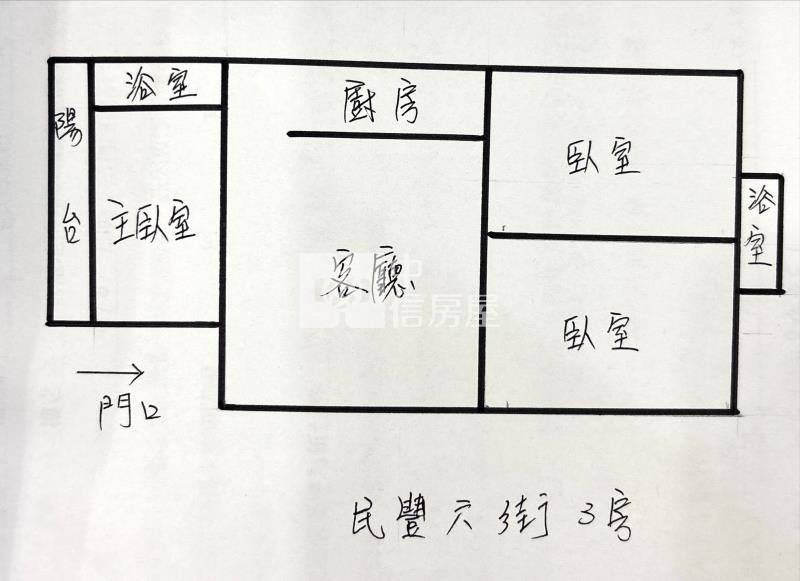 浴室
廚房
陽台
臥室
主臥室
浴室
客廳
中信房屋
臥室
門口
民豐六街3房